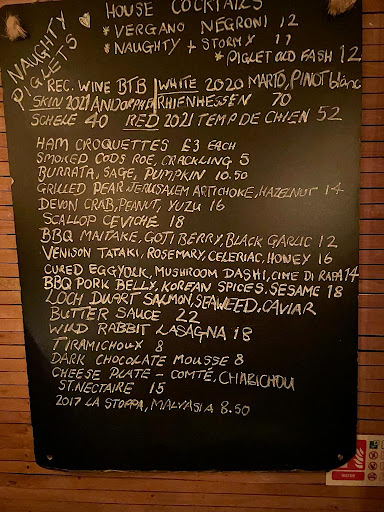 HOUSE COCKTAILS
NAUGHTY PIGLETS
* VERGANO NEGRONI 12
* NAUGHTY + STORMY 11
* PIGLET OLD FASH 12
REC. WINE BTB WHITE 2020 MARTO, PINOT blanc
SKIN 2021 RHIENHESSEN 70
SCHELE 40 RED 2021 TEMP DE CHIEN 52
HAM CROQUETTES £3 EACH
SMOKED CODS ROE, CRACKLING 5
BURRATA, SAGE, PUMPKIN 10.50
GRILLED PEAR, JERUSALEM ARTICHOKE, HAZELNUT 14
DEVON CRAB, PEANUT, YUZU 16
SCALLOP CEVICHE 18
BBQ MAITAKE, GOTI BERRY, BLACK GARLIC 12
VENISON TATAKI, ROSEMARY, CELERIAC, HONEY 16
CURED EGGYOLK, MUSHROOM DASHI, CIME DI RAPA 14
BBQ PORK BELLY, KOREAN SPICES, SESAME 18
LOCH DUART SALMON, SEAWEED, CAVIAR
BUTTER SAUCE 22
WILD RABBIT LASAGNA 18
TIRAMICHOUX 8
DARK CHOCOLATE MOUSSE 8
CHEESE PLATE - COMTÉ, CHABICHOU
ST. NECTAIRE 15
2017 LA STOPPA, MALVASIA 8.50